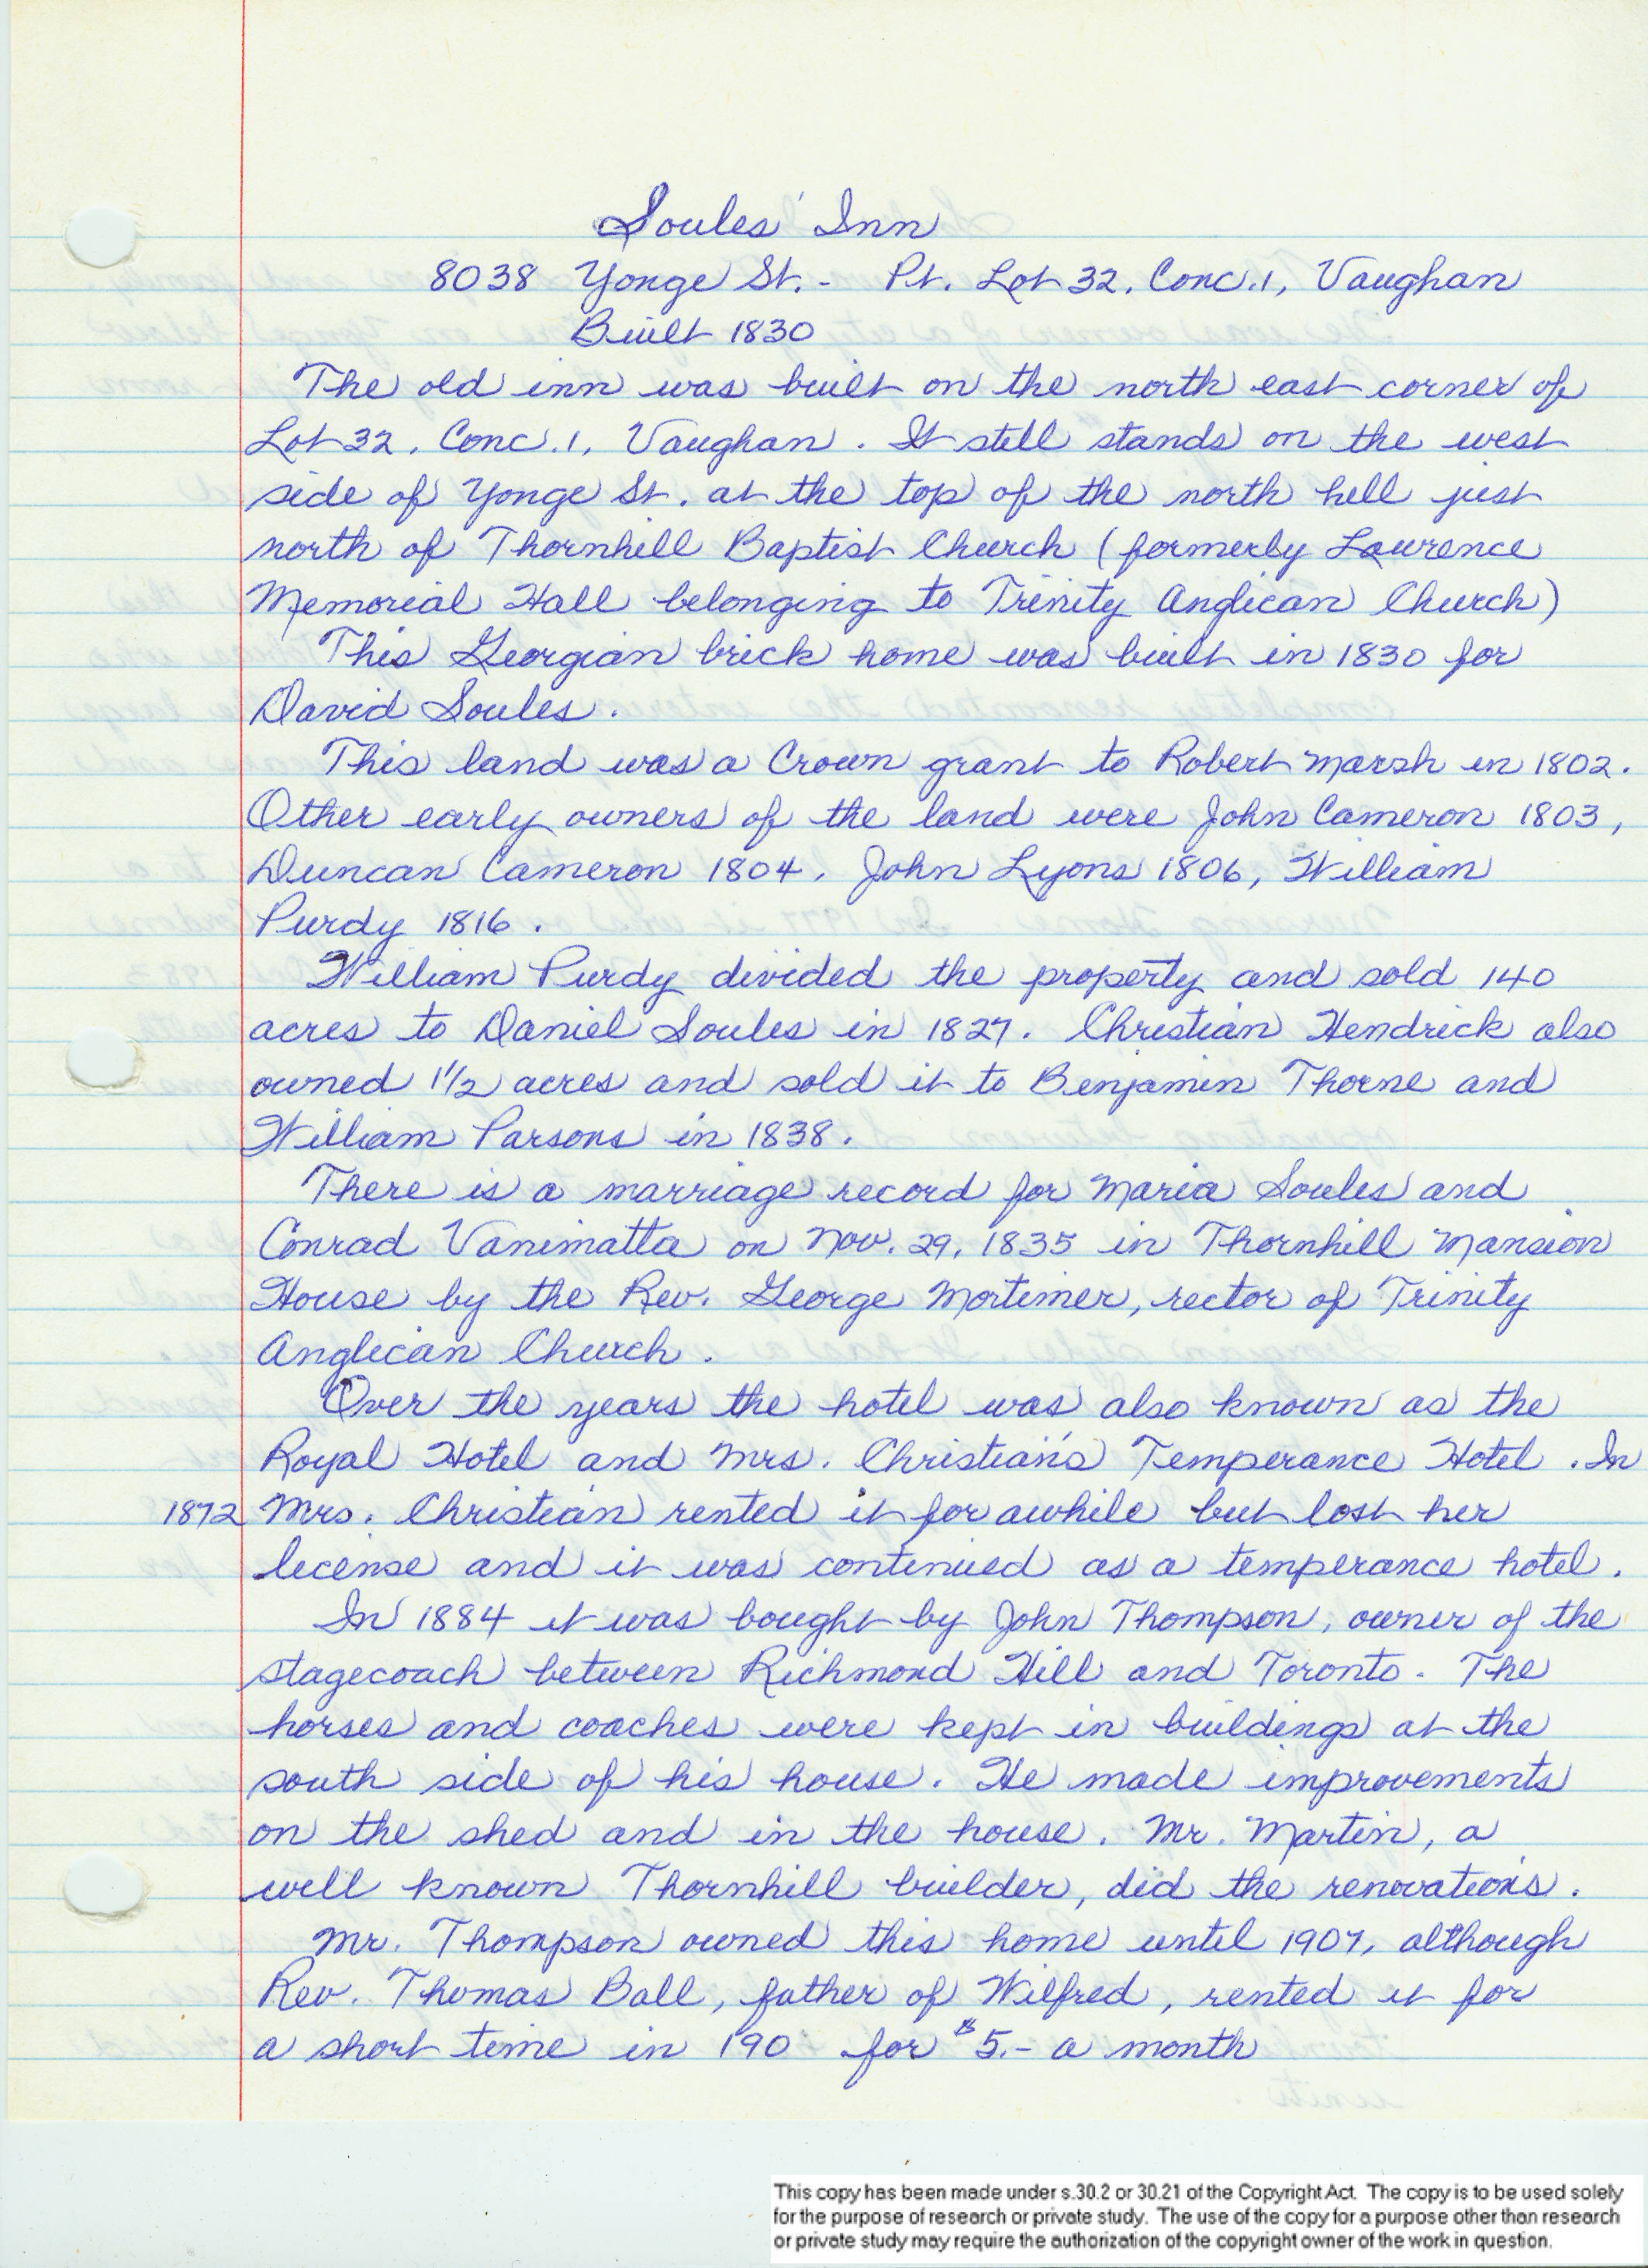 Soules' Inn
8038 Yonge St. - Pt. Lot 32, Conc. 1, Vaughan
Built 1830
The old inn was built on the north east corner of
Lot 32, Conc. 1, Vaughan. It still stands on the west
side of Yonge St. at the top of the north hill just
north of Thornhill Baptist Church (formerly Lawrence
Memorial Hall belonging to Trinity Anglican Church)
This Georgian brick home was built in 1830 for
David Soules.
This land was a Crown grant to Robert Marsh in 1802.
Other early owners of the land were John Cameron 1803,
Duncan Cameron 1804, John Lyons 1806, William
Purdy 1816.
William Purdy divided the property and sold 140
acres to Daniel Soules in 1827. Christian Hendrick also
owned 1 1/2 acres and sold it to Benjamin Thorne and
William Parsons in 1838.
There is a marriage record for Maria Soules and
Conrad Vanimatta on Nov. 29, 1835 in Thornhill Mansion
House by the Rev. George Mortimer, rector of Trinity
Anglican Church.
Over the years the hotel was also known as the
Royal Hotel and Mrs. Christian's Temperance Hotel. In
1872 Mrs. Christian rented it for awhile but lost her
license and it was continued as a temperance hotel.
In 1884 it was bought by John Thompson, owner of the
stagecoach between Richmond Hill and Toronto. The
horses and coaches were kept in buildings at the
south side of his house. He made improvements
on the shed and in the house. Mr. Martin, a
well known Thornhill builder, did the renovations.
Mr. Thompson owned this home until 1907, although
Rev. Thomas Ball, father of Wilfred, rented it for
a short time in 190 for $5.- a month
This copy has been made under s.30.2 or 30.21 of the Copyright Act. The copy is to be used solely
for the purpose of research or private study. The use of the copy for a purpose other than research
or private study may require the authorization of the copyright owner of the work in question.